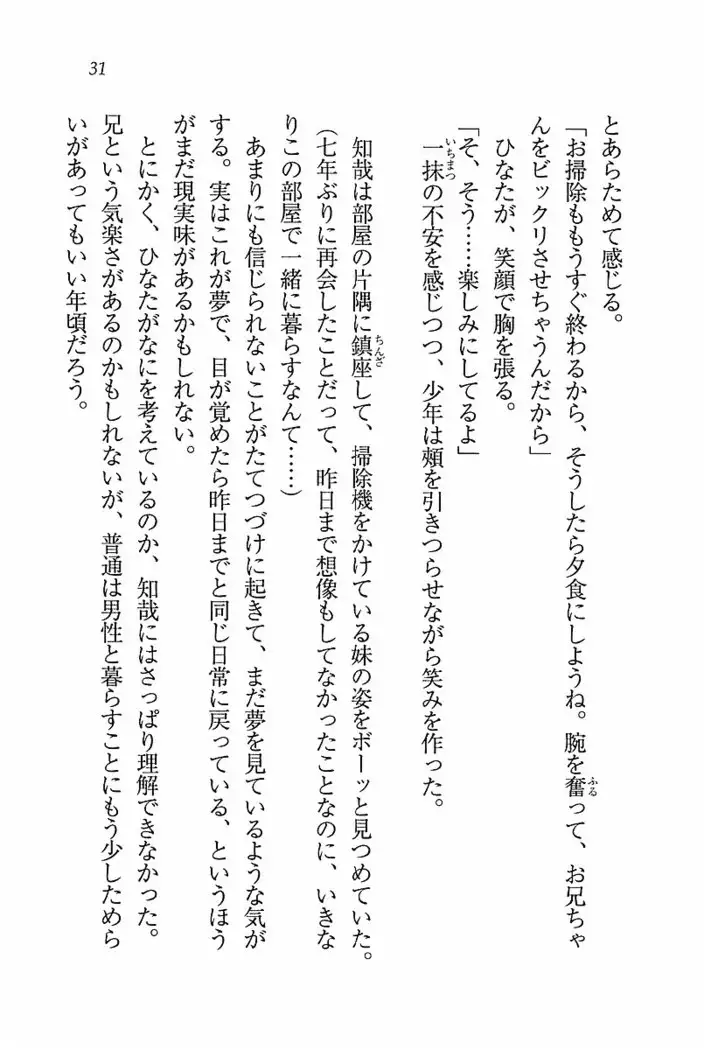 とあらためて感じる。
「お掃除ももうすぐ終わるから、そうしたら夕食にしようね。腕を奮って、お兄ちゃ
んをビックリさせちゃうんだから」
ひなたが、笑顔で胸を張る。
「そ、そう……楽しみにしてるよ」
一抹の不安を感じつつ、少年は頰を引きつらせながら笑みを作った。
知哉は部屋の片隅に鎮座して、掃除機をかけている妹の姿をボーッと見つめていた。
（七年ぶりに再会したことだって、昨日まで想像もしてなかったことなのに、いきな
りこの部屋で一緒に暮らすなんて……）
あまりにも信じられないことがたてつづけに起きて、まだ夢を見ているような気が
する。実はこれが夢で、目が覚めたら昨日までと同じ日常に戻っている、というほう
がまだ現実味があるかもしれない。
とにかく、ひなたがなにを考えているのか、知哉にはさっぱり理解できなかった。
兄という気楽さがあるのかもしれないが、普通は男性と暮らすことにもう少しためら
いがあってもいい年頃だろう。
31
ふる
いちまつ
ちんざ